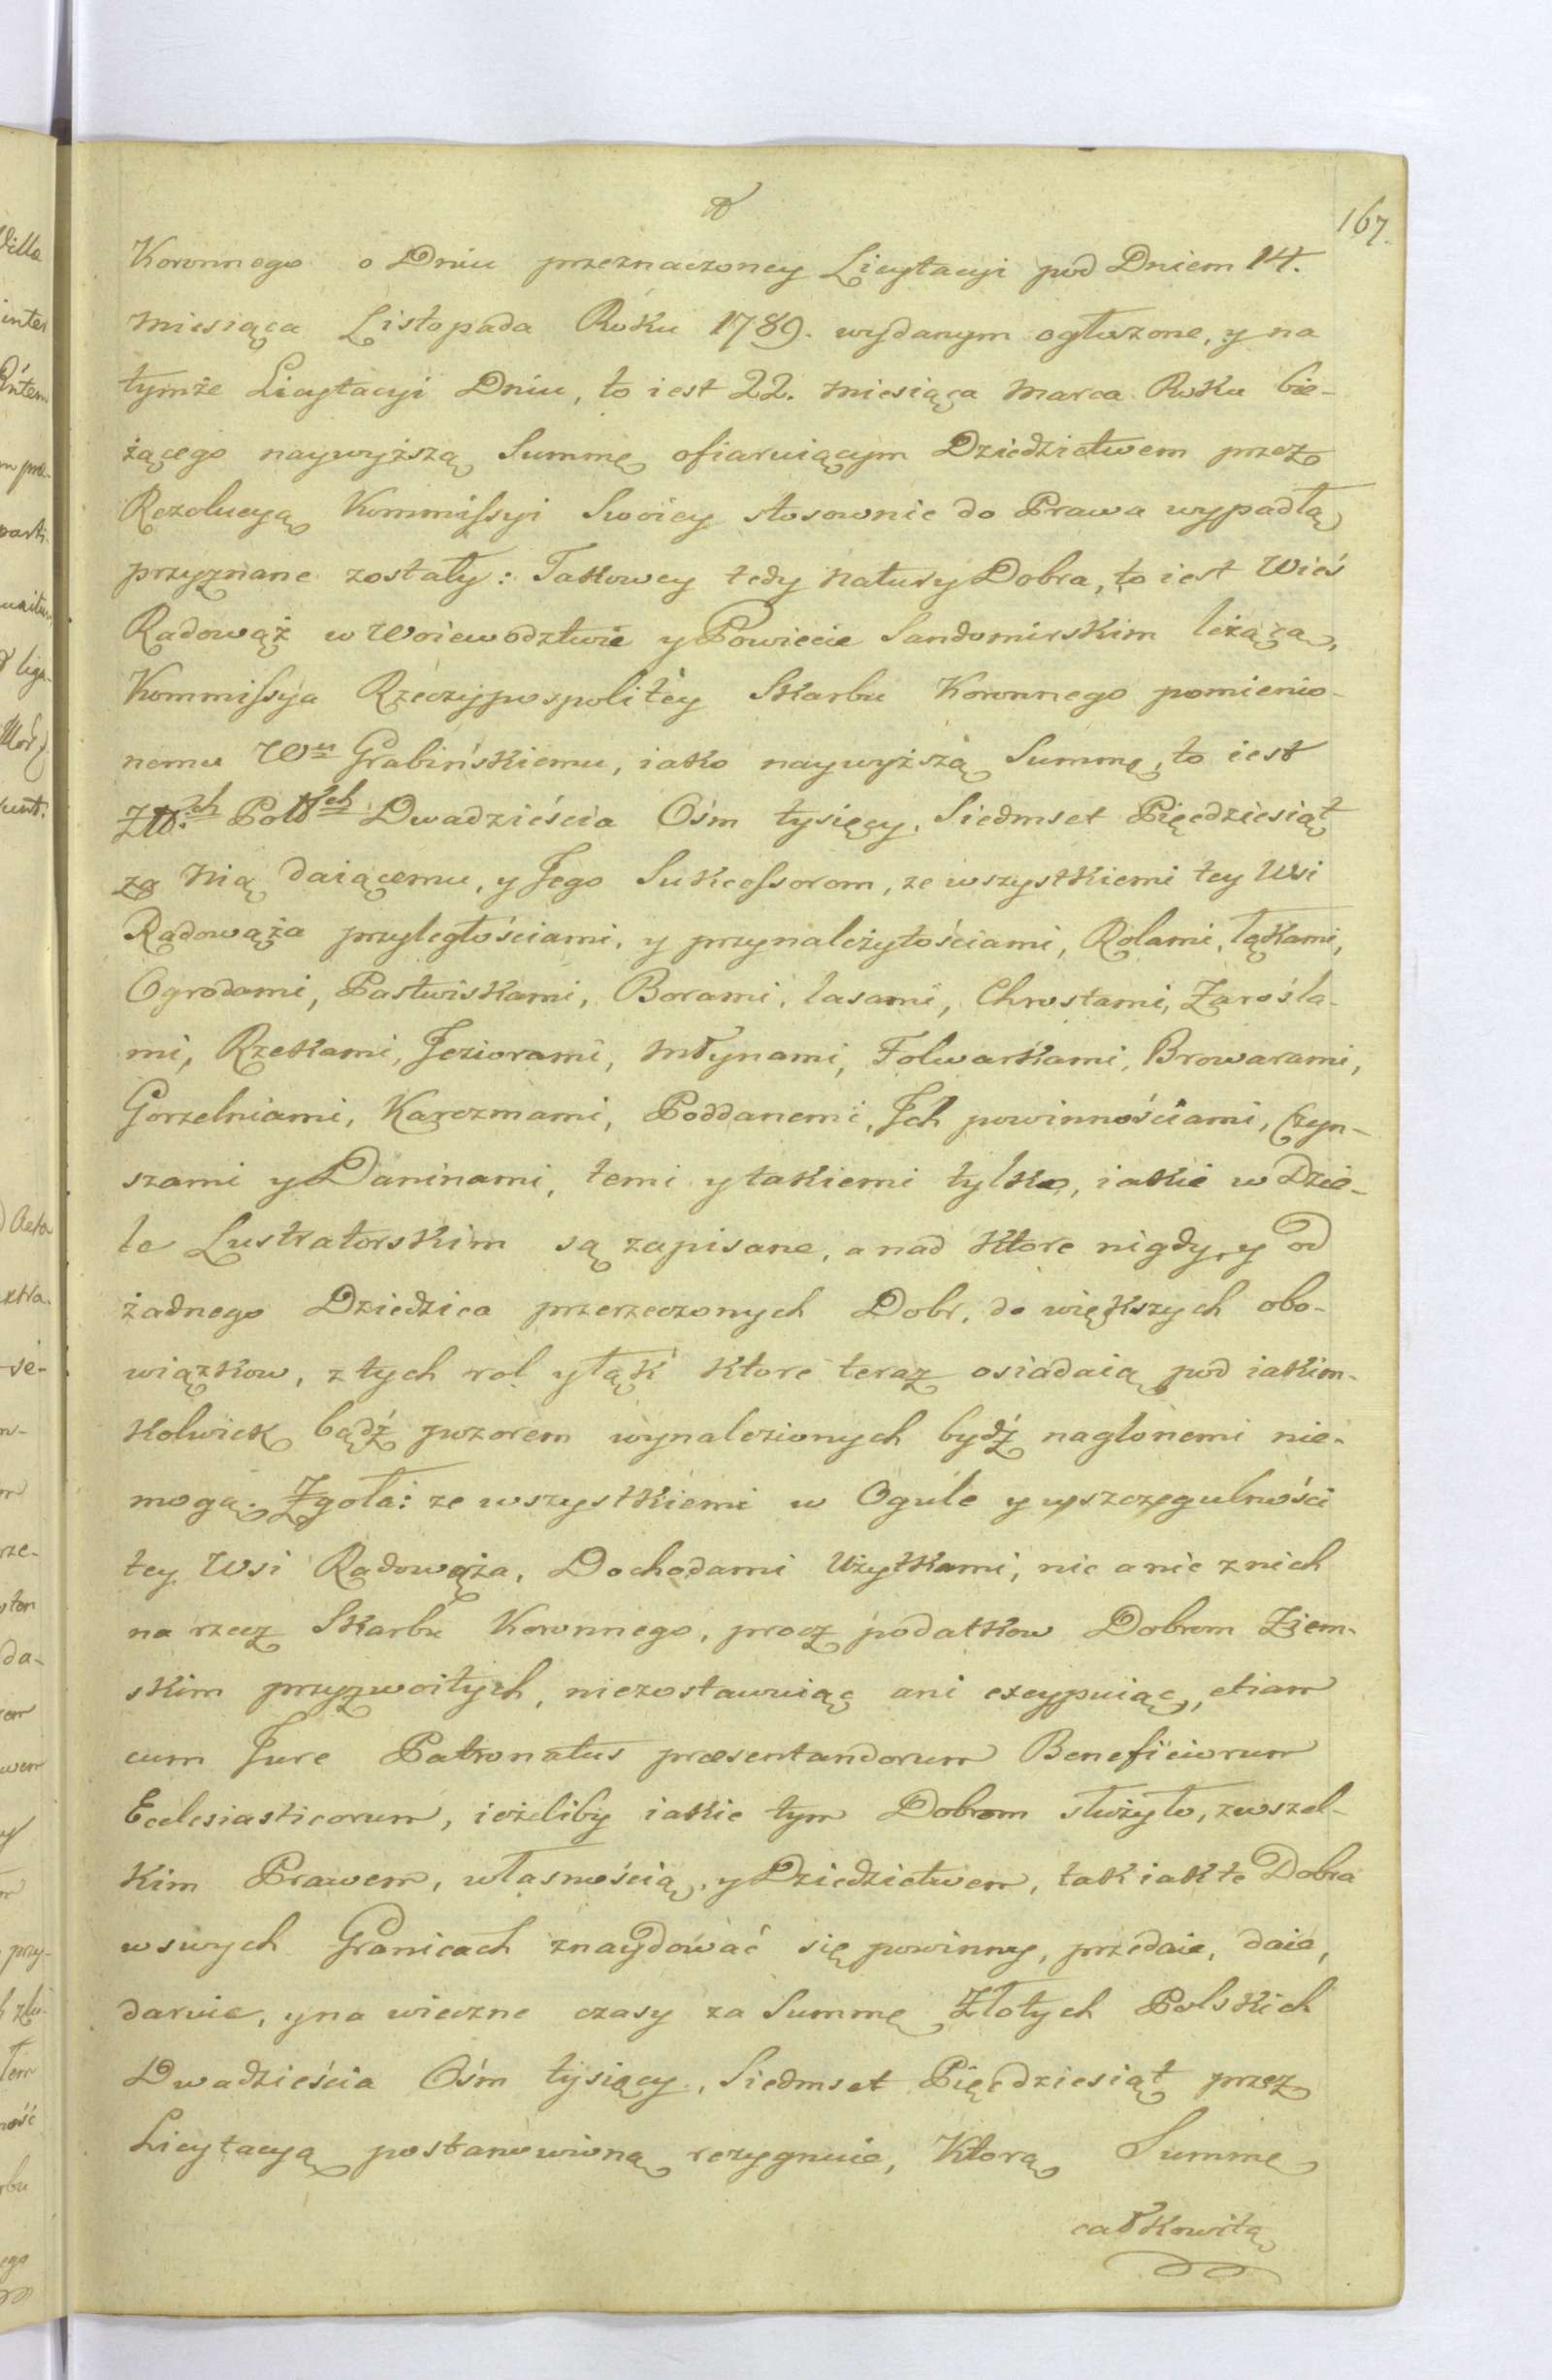 167.
Koronnego o Dniu przeznaczoney Licytacyi pod Dniem 14.
Miesiąca Listopada Roku 1789. wydanym ogłoszone, y na
tymże Licytacyi Dniu, to iest 22. Miesiąca Marca Roku bie-
żącego naywyższą Summę ofiaruiącym Dziedzictwem przez
Rezolucyą Kommissyi Swoiey stosownie do Prawa wypadłą
przyznane zostały: Takowey tedy Natury Dobra, to iest Wieś
Radowąż w Woiewodztwie y Powiecie Sandomirskim leżącą,
Kommissya Rzeczypospolitey Skarbu Koronnego pomienio-
nemu Wu Grabińskiemu, iako naywyższą Summę, to iest
Złł:ch Pollch Dwadzieścia Ośm tysięcy, Siedmset Pięćdziesiąt
za Nią daiącemu, y Jego Sukcessorom, ze wszystkiemi tey Wsi
Radowąża przyległościami, y przynależytościami, Rolami, Łąkami,
Ogrodami, Pastwiskami, Borami, lasami, Chrostami, Zarośla-
mi, Rzekami, Jeziorami, Młynami, Folwarkami, Browarami,
Gorzelniami, Karczmami, Poddanemi, Ich powinnościami, Czyn-
szami y Daninami, temi y takiemi tylko, iakie w Dzie-
le Lustratorskim są zapisane, a nad ktore nigdy, y od
żadnego Dziedzica przerzeczonych Dobr, do większych obo-
wiązkow, z tych rol y łąk ktore teraz osiadaią pod iakim-
kolwiek bądź pozorem wynalezionych bydź nagłonemi nie-
mogą. Zgoła: ze wszystkiemi w Ogule y wszczegulności
tey Wsi Radowąża, Dochodami Użytkami, nic a nic z nich
na rzecz Skarbu Koronnego, procz podatkow Dobrom Ziem-
skim przyzwoitych, niezostawuiąc ani excypuiąc, etiam
cum Jure Patronatus præsentandorum Beneficiorum
Ecclesiasticorum, ieżeliby iakie tym Dobrom służyło, zwszel-
kim Prawem, własnością, y Dziedzictwem, tak iak te Dobra
wswych Granicach znaydować się powinny, przedaie, daie,
daruie, y na wieczne czasy za Summę Złotych Polskich
Dwadzieścia Ośm tysięcy, Siedmset Pięćdziesiąt przez
Licytacyą postanowioną rezygnuie, Ktorą Summę
całkowitą